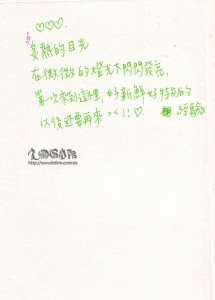 ♡♡♡.
炙熱的目光
在微微的燈光下閃閃發亮,
第一次來到這裡, 好新鮮好特別的
經驗
以後還要再來 >< !! ♡